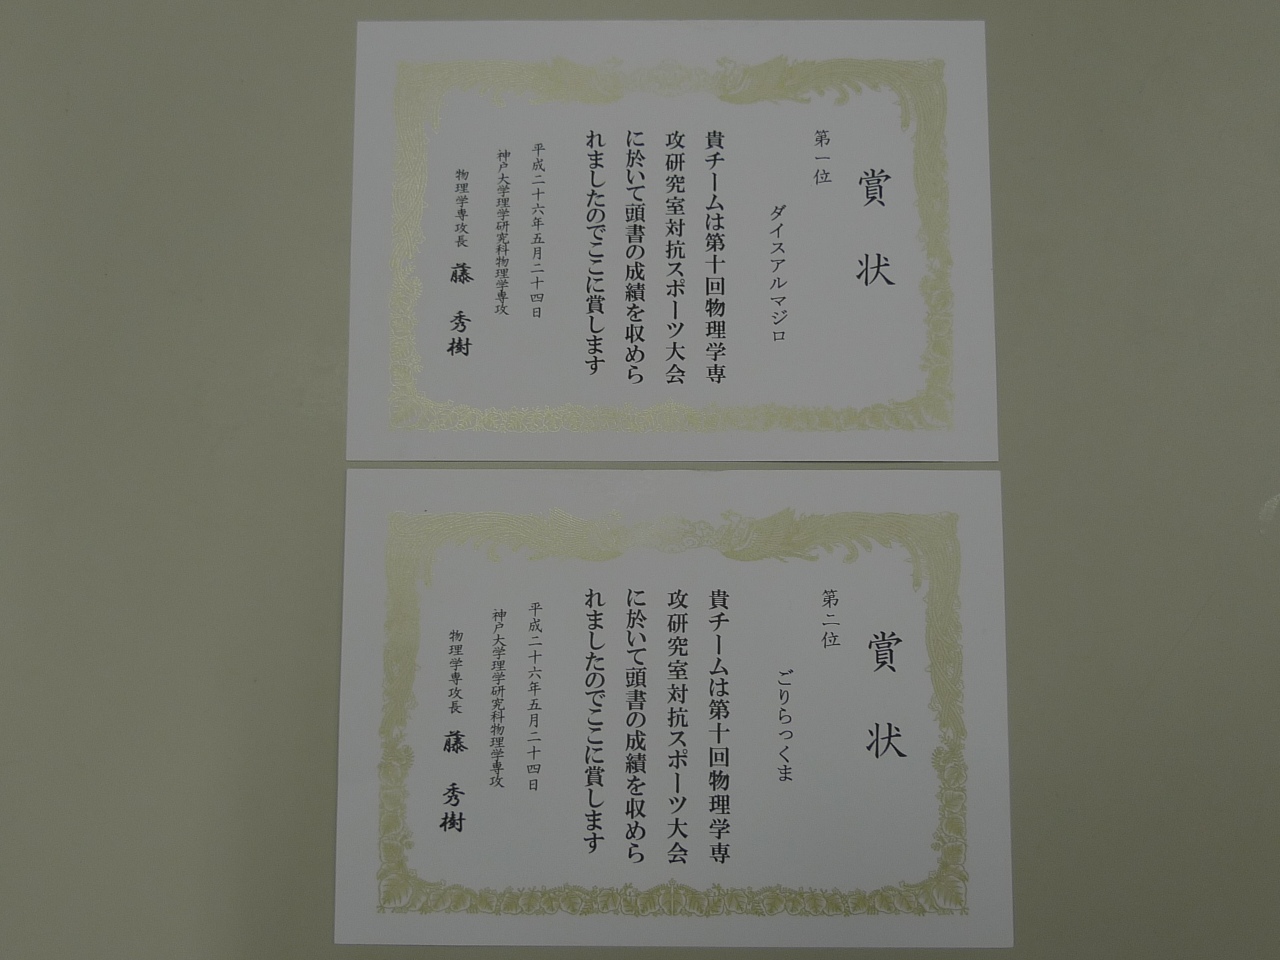 賞状
第一位
ダイスアルマジロ
貴チームは第十回物理学専
攻研究室対抗スポーツ大会
に於いて頭書の成績を収めら
れましたのでここに賞します
平成二十六年五月二十四日
神戸大学理学研究科物理学専攻
物理学専攻長 藤 秀樹
賞状
第二位
ごりらっくま
貴チームは第十回物理学専
攻研究室対抗スポーツ大会
に於いて頭書の成績を収めら
れましたのでここに賞します
平成二十六年五月二十四日
神戸大学理学研究科物理学専攻
物理学専攻長 藤 秀樹